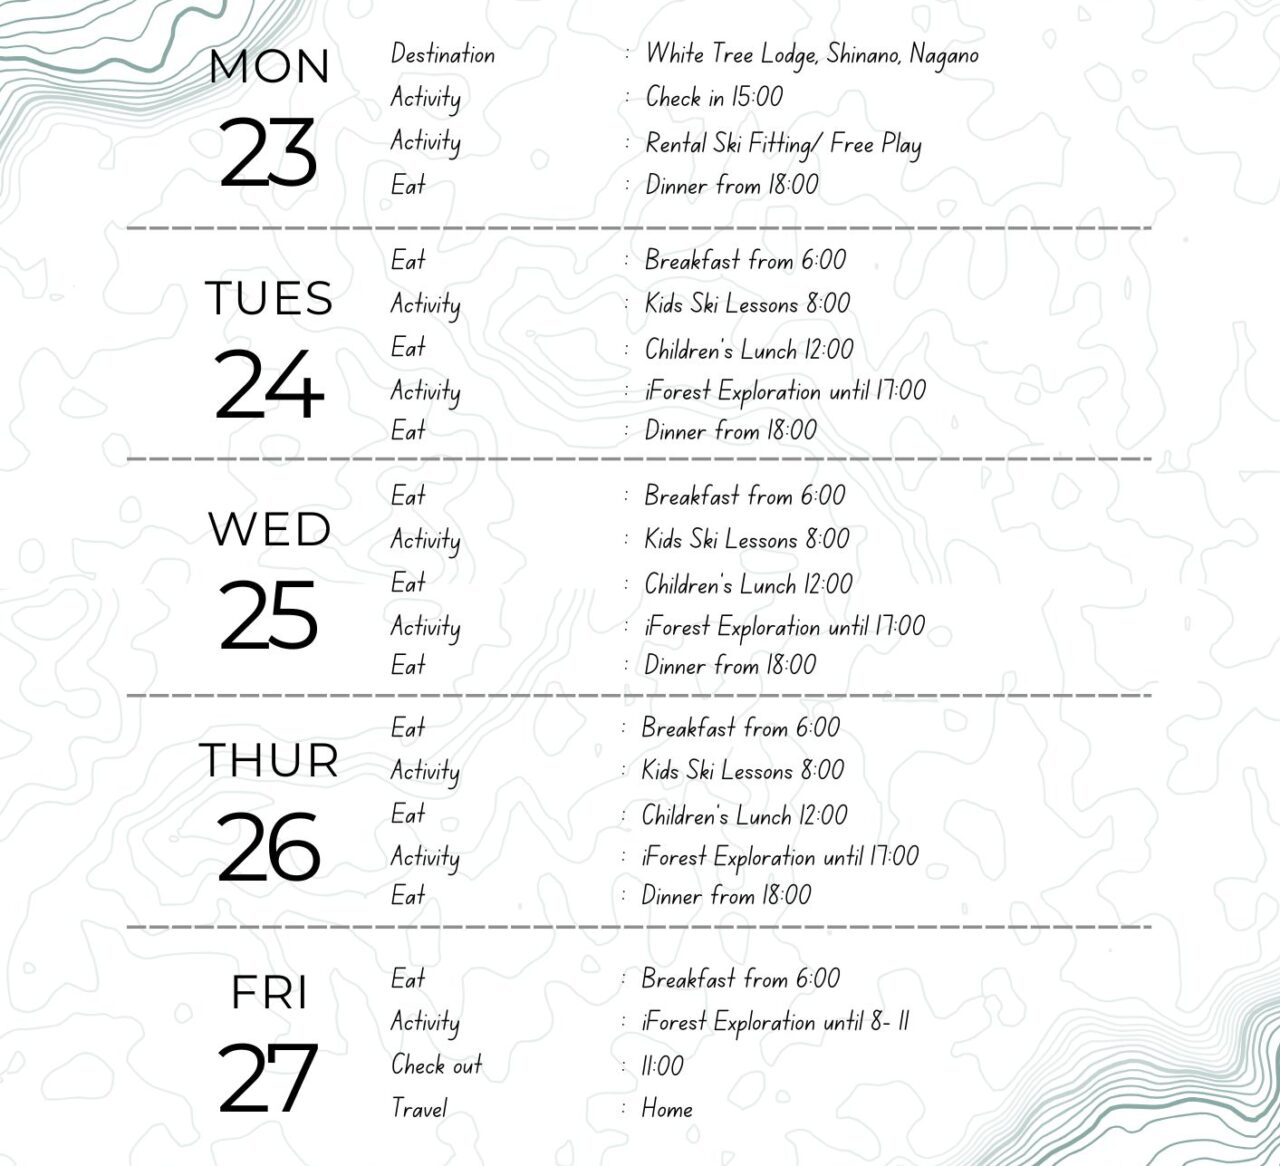 MON
23
Destination : White Tree Lodge, Shinano, Nagano
Activity : Check in 15:00
Activity : Rental Ski Fitting/ Free Play
Eat : Dinner from 18:00
TUES
24
Eat : Breakfast from 6:00
Activity : Kids Ski Lessons 8:00
Eat : Children's Lunch 12:00
Activity : iForest Exploration until 17:00
Eat : Dinner from 18:00
WED
25
Eat : Breakfast from 6:00
Activity : Kids Ski Lessons 8:00
Eat : Children's Lunch 12:00
Activity : iForest Exploration until 17:00
Eat : Dinner from 18:00
THUR
26
Eat : Breakfast from 6:00
Activity : Kids Ski Lessons 8:00
Eat : Children's Lunch 12:00
Activity : iForest Exploration until 17:00
Eat : Dinner from 18:00
FRI
27
Eat : Breakfast from 6:00
Activity : iForest Exploration until 8- 11
Check out : 11:00
Travel : Home